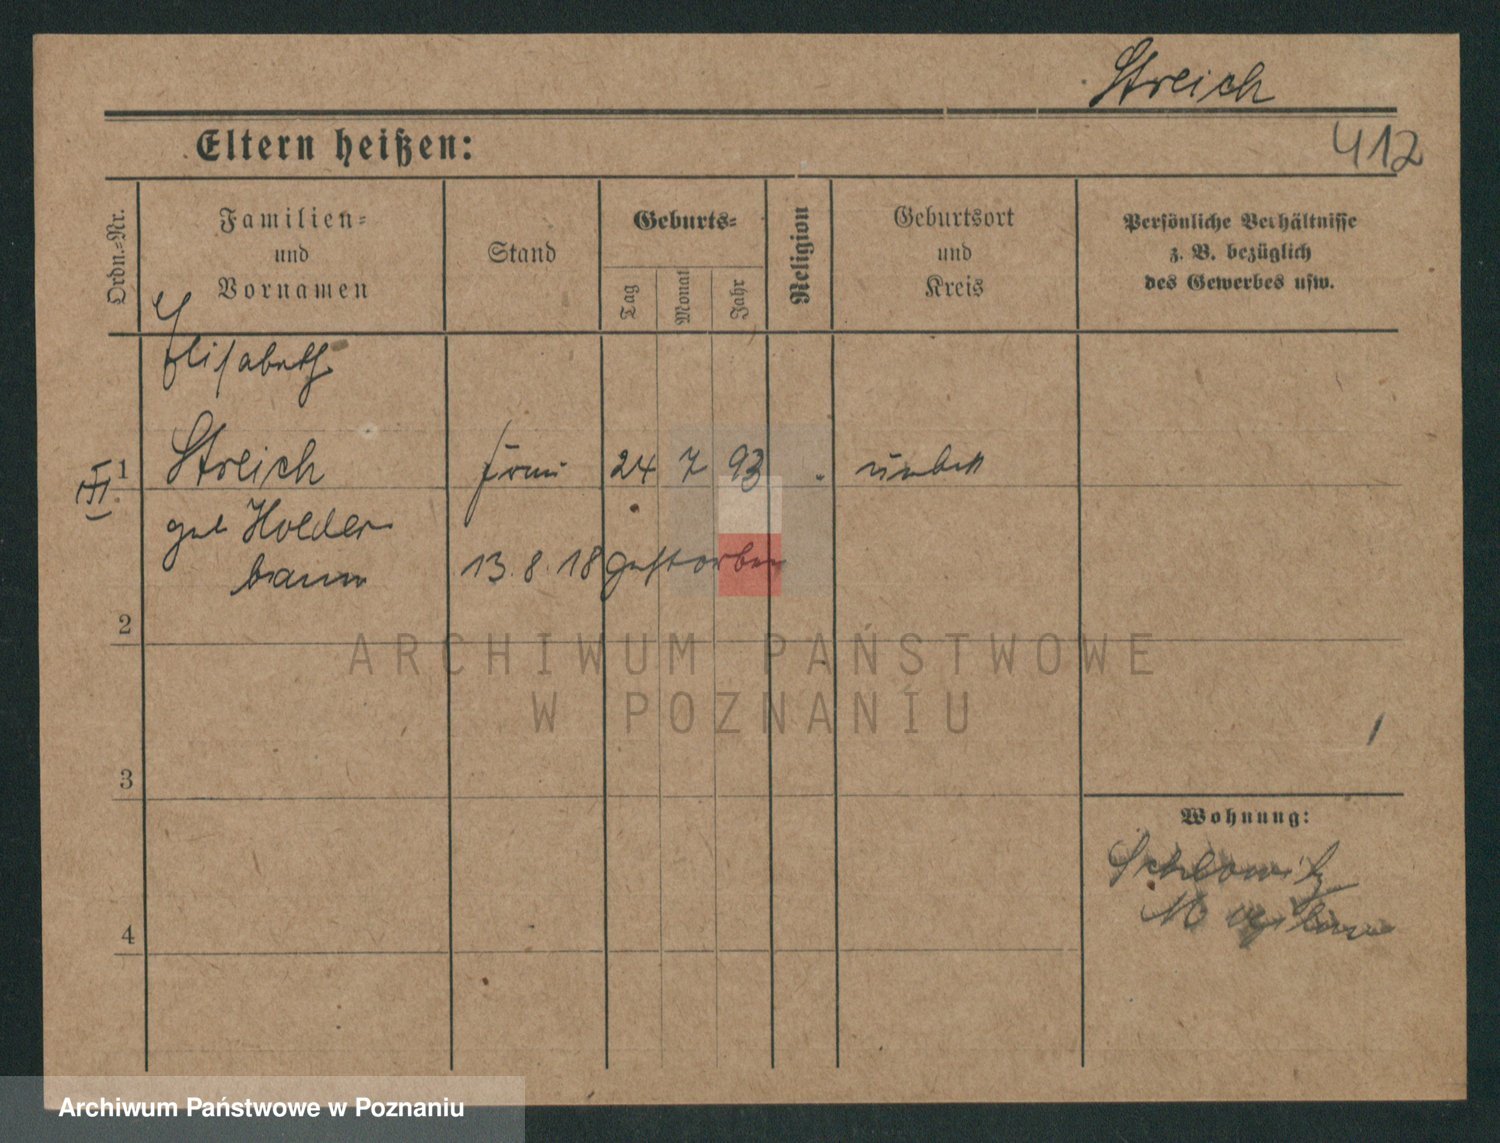 Streich
412
Eltern heißen:
Ordn.-Nr.
Familien-
und
Vornamen
Stand
Geburts-
Tag
Monat
Jahr
Religion
Geburtsort
und
Kreis
Persönliche Verhältnisse
z. B. bezüglich
des Gewerbes usw.
Elisabeth
III
1
Streich
24 7 93
unbek
geb Holder
baum
13. 8. 18 gestorben
2
3
4
Wohnung:
ARCHIWUM PAŃSTWOWE
W POZNANIU
Archiwum Państwowe w Poznaniu